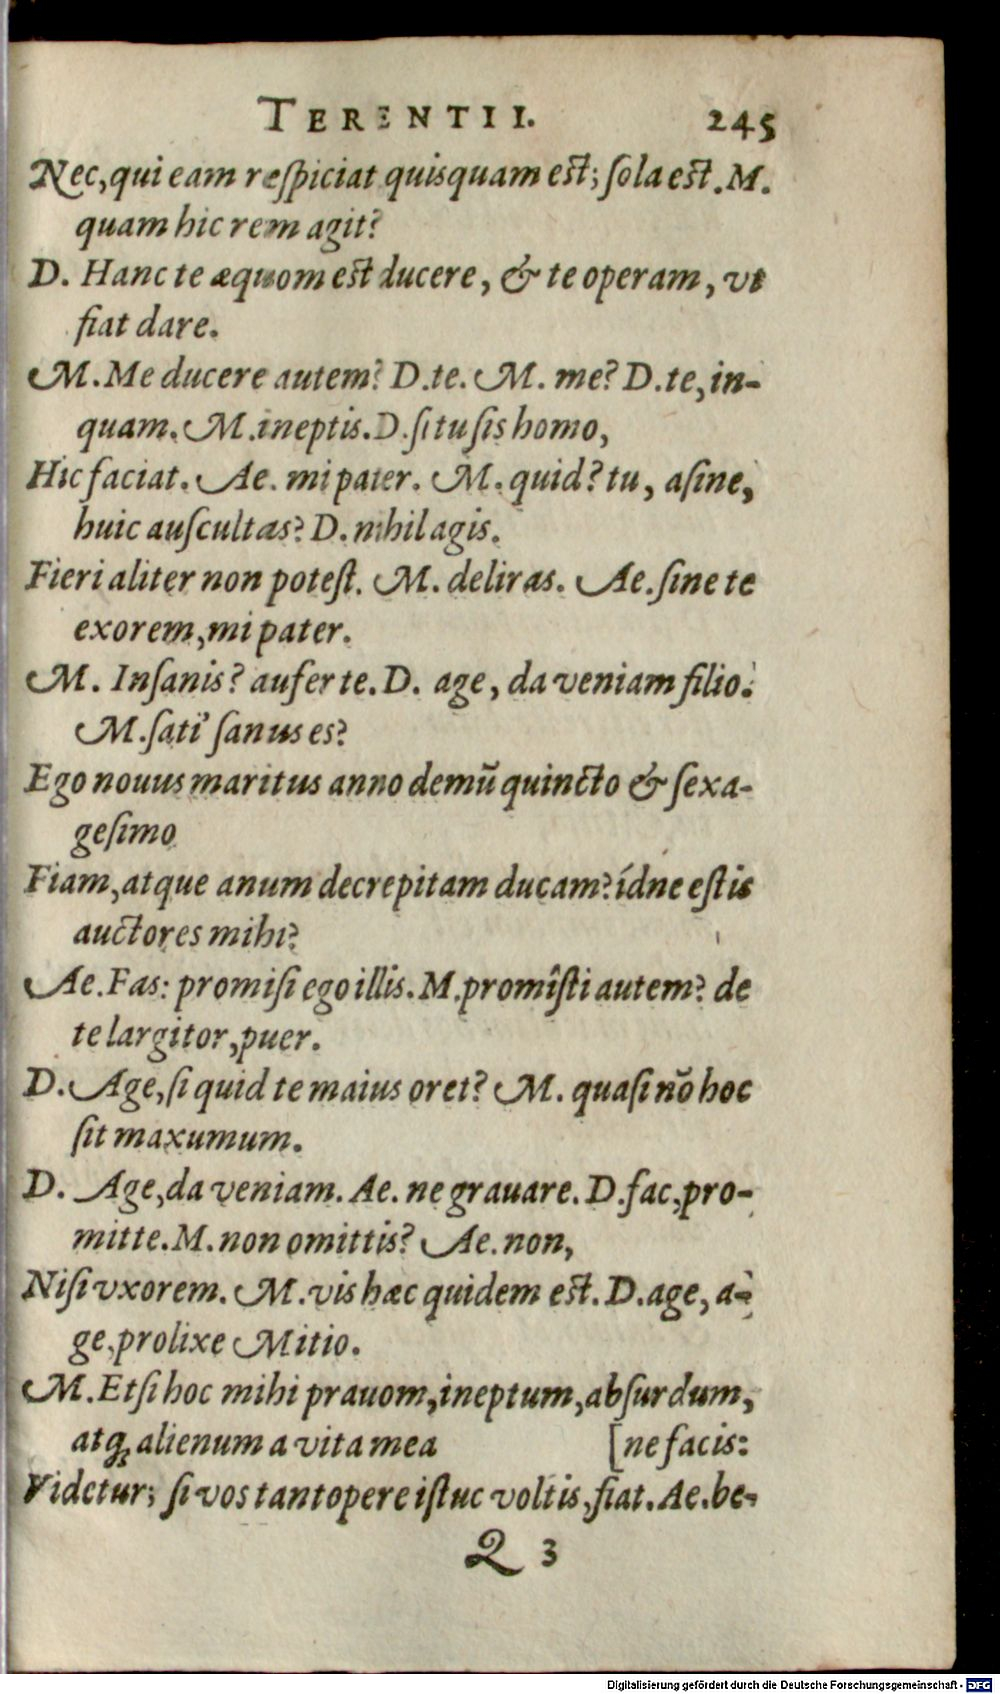 TERENTII. 245
Nec, qui eam reſpiciat quisquam eſt; ſola eſt. M.
quam hic rem agit?
D. Hanc te æquom eſt ducere, & te operam, vt
fiat dare.
M. Me ducere autem? D. te. M. me? D. te, in-
quam. M. ineptis. D. ſi tu ſis homo,
Hic faciat. Ae. mi pater. M. quid? tu, aſine,
huic auſcultas? D. nihil agis.
Fieri aliter non poteſt. M. deliras. Ae. ſine te
exorem, mi pater.
M. Inſanis? aufer te. D. age, da veniam filio.
M. ſati' ſanus es?
Ego nouus maritus anno demū quincto & ſexa-
geſimo
Fiam, atque anum decrepitam ducam? ídne eſtis
auctores mihi?
Ae. Fas: promiſi ego illis. M. promîſti autem? de
te largitor, puer.
D. Age, ſi quid te maius oret? M. quaſi nō hoc
ſit maxumum.
D. Age, da veniam. Ae. ne grauare. D. fac, pro-
mitte. M. non omittis? Ae. non,
Niſi vxorem. M. vis hæc quidem eſt. D. age, a-
ge, prolixe Mitio.
M. Etſi hoc mihi prauom, ineptum, abſurdum,
atq; alienum a vita mea [ne facis:
Videtur; ſi vos tantopere iſtuc voltis, fiat. Ae. be-
Q 3
Digitalisierung gefördert durch die Deutsche Forschungsgemeinschaft - DFG